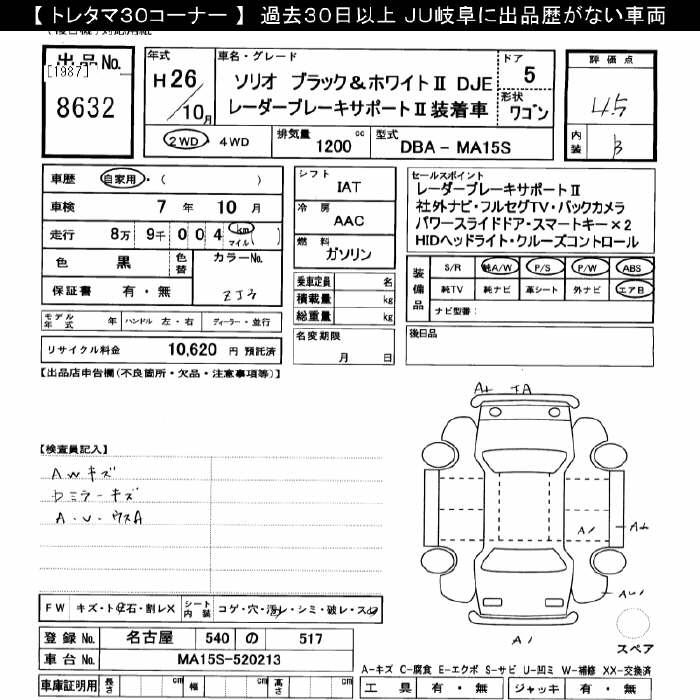 【 トレタマ30コーナー 】 過去30日以上 JU岐阜に出品歴がない車両
出品 No.
[1987]
8632
年式
H 26
10 月
車名・グレード
ソリオ ブラック&ホワイトⅡ DJE
レーダーブレーキサポートⅡ装着車
ドア
5
形状
ワゴン
2WD・4WD
排気量
1200 cc
型式
DBA - MA15S
評価点
4.5
内装
B
車歴 自家用・( )
車検 7 年 10 月
走行 8万 9千 0 0 4 km マイル ( )
色 黒 色替 カラーNo.
ZJ3
保証書 有・無
モデル年式 年 ハンドル 左・右 ディーラー・並行
リサイクル料金 10,620 円 預託済
シフト
IAT
冷房
AAC
燃料
ガソリン
乗車定員 名
積載量 kg
総重量 kg
名変期限
月 日
セールスポイント
レーダーブレーキサポートⅡ
社外ナビ・フルセグTV・バックカメラ
パワースライドドア・スマートキー×2
HIDヘッドライト・クルーズコントロール
装備品
S/R 社A/W P/S P/W ABS
純TV 純ナビ 革シート 外ナビ エアB
ナビ型番:
後日品
【出品店申告欄(不良箇所・欠品・注意事項等)】
【検査員記入】
AWキズ
ドミラーキズ
A・U・ウスA
A1
A1
FW キズ・ト石・割レX
シート内装 コゲ・穴・汚レ・シミ・破レ・スレ
登録 No. 名古屋 540 の 517
車台 No. MA15S-520213
車庫証明用 長さ cm 幅 cm 高さ cm
スペア
A-キズ C-腐食 E-エクボ S-サビ U-凹ミ W-補修 XX-交換済
工具 有・無 ジャッキ 有・無